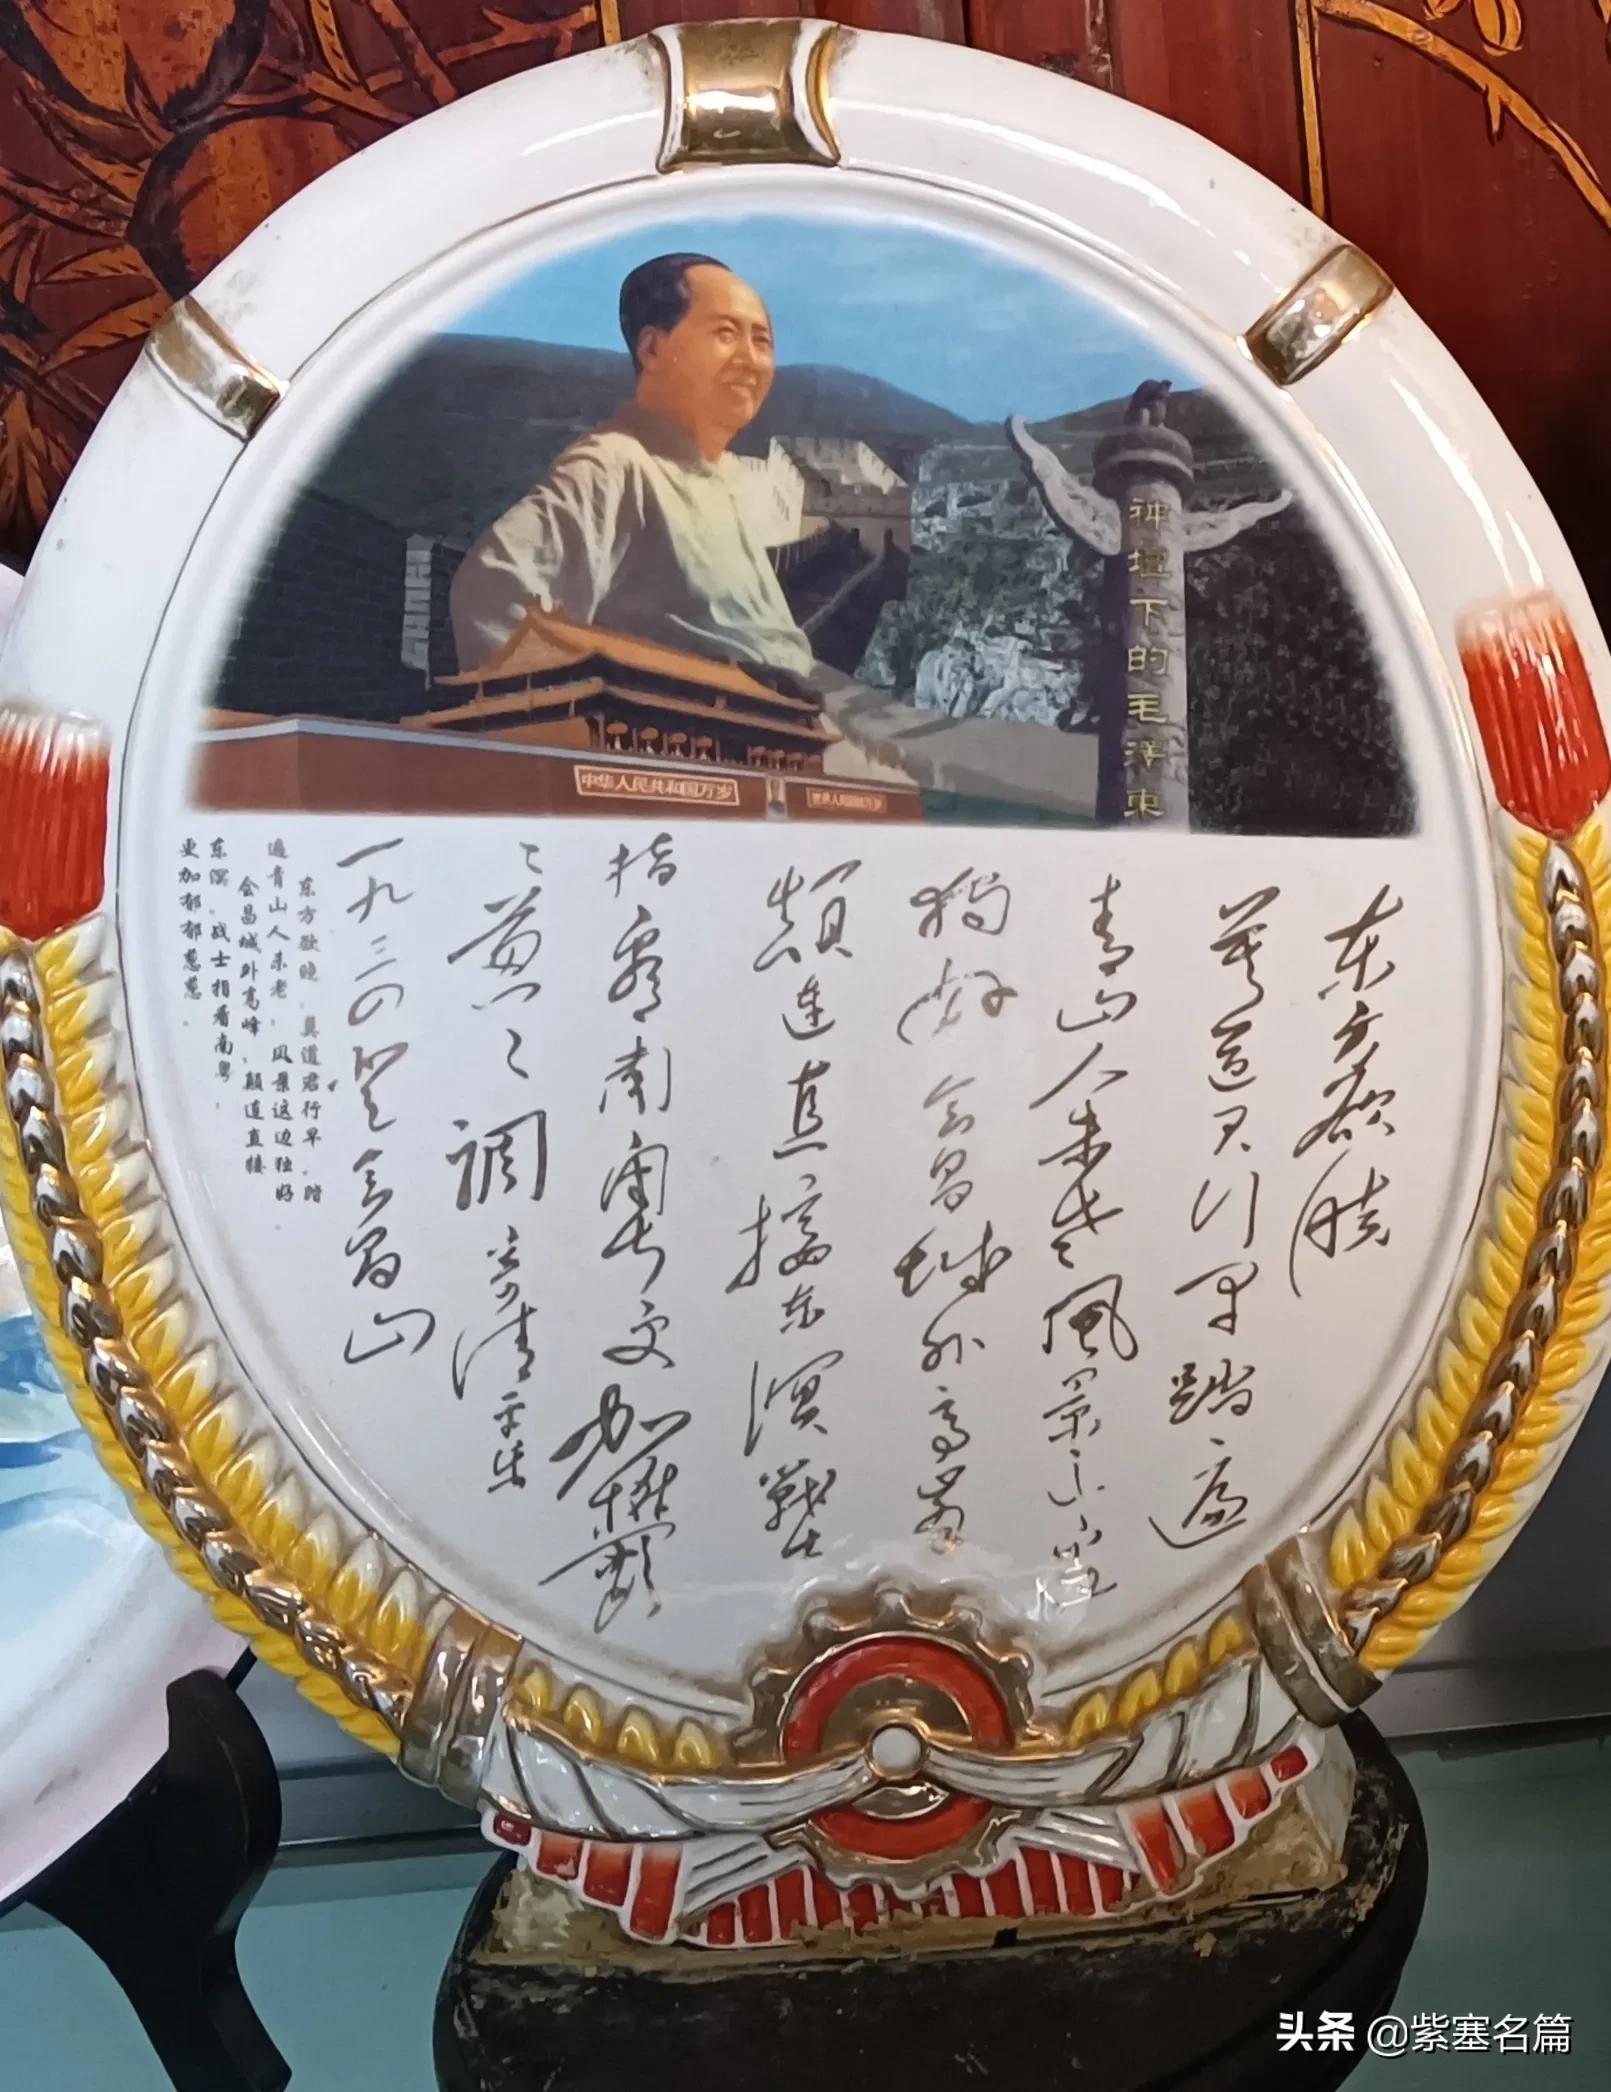 神壇下的毛澤東
中华人民共和国万岁
东方欲晓
莫道君行早踏遍
青山人未老风景这边
独好会昌城外高峯
颠连直接东溟战士
指看南粤更加欝
々葱々调寄清平乐
一九三四登会昌山
东方欲晓,莫道君行早。踏
遍青山人未老,风景这边独好。
会昌城外高峰,颠连直接
东溟。战士指看南粤,
更加郁郁葱葱。
头条 @紫塞名篇